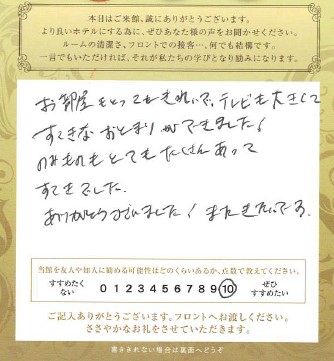 本日はご来館、誠にありがとうございます。
より良いホテルにする為に、ぜひあなた様の声をお聞かせください。
ルームの清潔さ、フロントでの接客…、何でも結構です。
一言でもいただければ、それが私たちの学びとなり励みになります。
お部屋もとってもきれいで、テレビも大きくて
すてきなおとまりができました!
のみものもとてもたくさんあって
すてきでした。
ありがとうございました! またきたいです。
当館を友人や知人に勧める可能性はどのくらいあるか、点数で教えてください。
すすめたくない 0 1 2 3 4 5 6 7 8 9 10 ぜひすすめたい
ご記入ありがとうございます。フロントへお渡しください。
ささやかなお礼をさせていただきます。
書ききれない場合は裏面へどうぞ